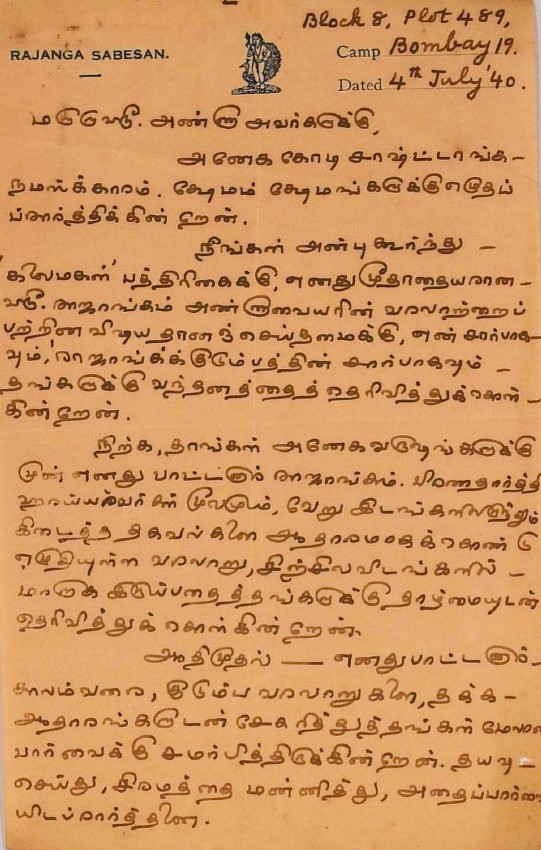 Block 8, Plot 489,
RAJANGA SABESAN.
Camp Bombay 19.
Dated 4th July '40.
மகாஸ்ரீ. அண்ணா அவர்களுக்கு,
அனேக கோடி சாஷ்ட்டாங்க-
நமஸ்க்காரம். க்ஷேமம் க்ஷேமங்களுக்கு எழுதப்
ப்ரார்த்திக்கின்றேன்.
நீங்கள் அன்பு கூர்ந்து -
'கலைமகள்' பத்திரிகைக்கு, எனது மூதாதையரான-
ஸ்ரீ. ராஜாங்கம் அண்ணாவையரின் வரலாற்றைப்
பற்றின விஷய தானஞ் செய்தமைக்கு, என் சார்பாக
வும், ராஜாங்கக் குடும்பத்தின் சார்பாகவும் -
தங்களுக்கு வந்தனத்தைத் தெரிவித்துக்கொள்-
கின்றேன்.
நிற்க, தாங்கள் அனேக வருஷங்களுக்கு
முன் எனது பாட்டனார் ராஜாங்கம். பிரணதார்த்தி
ஹரய்யரவர்கள் மூலமும், வேறு இடங்களிலிருந்தும்
கிடைத்த தகவல்களை ஆதாரமாகக்கொண்டு
எழுதியுள்ள வரலாறு, சிற்சிலவிடங்களில் -
மாறாக இருப்பதைத் தங்களுக்கு தாழ்மையுடன்
தெரிவித்துக் கொள்கின்றேன்.
ஆதிமுதல் — எனது பாட்டனார்-
காலம்வரை, குடும்ப வரலாறுகளை, தக்க-
ஆதாரங்களுடன் சேகரித்துத் தங்கள் மேலான
பார்வைக்கு சமர்பித்திடுக்கின்றேன். தயவு-
செய்து, சிரமத்தை மன்னித்து, அதைப்பார்வை
யிடப்ரார்த்தனை.